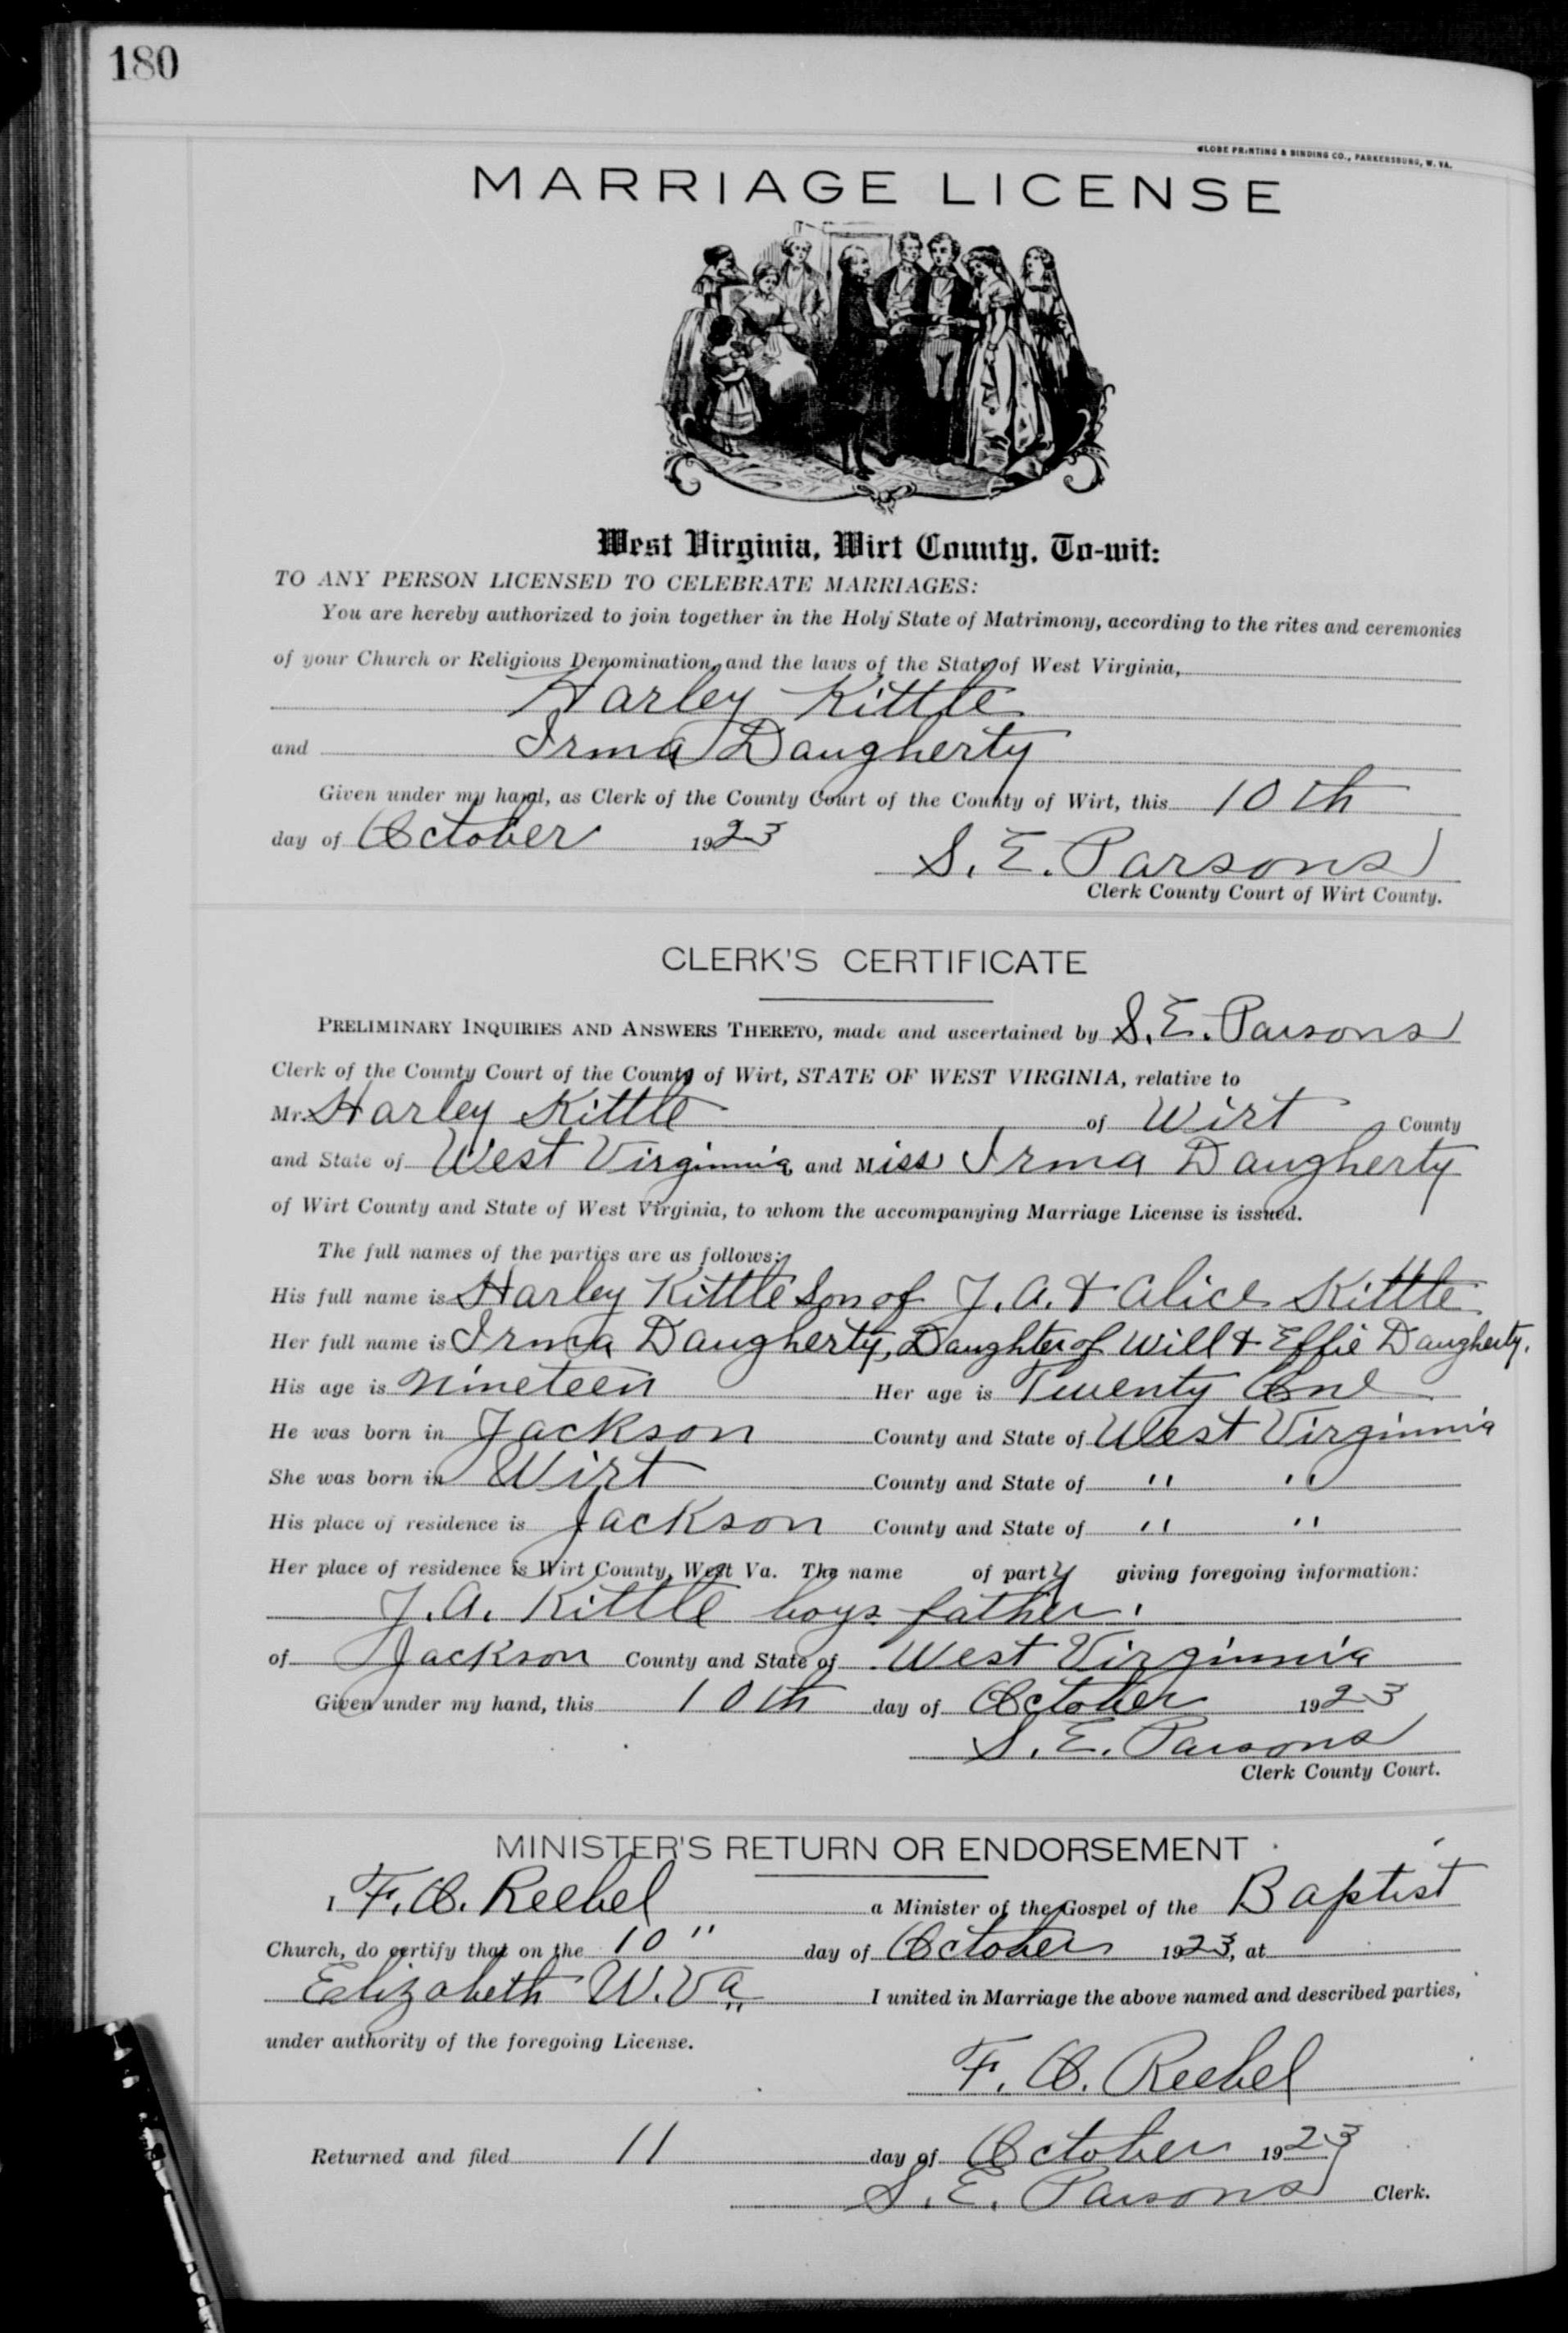 180
GLOBE PRINTING & BINDING CO., PARKERSBURG, W. VA.
MARRIAGE LICENSE
West Virginia, Wirt County, To-wit:
TO ANY PERSON LICENSED TO CELEBRATE MARRIAGES:
You are hereby authorized to join together in the Holy State of Matrimony, according to the rites and ceremonies
of your Church or Religious Denomination, and the laws of the State of West Virginia,
Harley Kittle
and Irma Daugherty
Given under my hand, as Clerk of the County Court of the County of Wirt, this 10th
day of October 1923
S. E. Parsons
Clerk County Court of Wirt County.
CLERK'S CERTIFICATE
PRELIMINARY INQUIRIES AND ANSWERS THERETO, made and ascertained by S. E. Parsons
Clerk of the County Court of the County of Wirt, STATE OF WEST VIRGINIA, relative to
Mr. Harley Kittle of Wirt County
and State of West Virginnia and Miss Irma Daugherty
of Wirt County and State of West Virginia, to whom the accompanying Marriage License is issued.
The full names of the parties are as follows:
His full name is Harley Kittle Son of J. A. & Alice Kittle
Her full name is Irma Daugherty, Daughter of Will & Effie Daugherty.
His age is nineteen Her age is Twenty One
He was born in Jackson County and State of West Virginnia
She was born in Wirt County and State of " "
His place of residence is Jackson County and State of " "
Her place of residence is Wirt County, West Va. The name of party giving foregoing information:
J. A. Kittle boys father.
of Jackson County and State of West Virginnia
Given under my hand, this 10th day of October 1923
S. E. Parsons
Clerk County Court.
MINISTER'S RETURN OR ENDORSEMENT
I F. O. Reehel a Minister of the Gospel of the Baptist
Church, do certify that on the 10" day of October 1923, at
Elizabeth W. Va I united in Marriage the above named and described parties,
under authority of the foregoing License.
F. O. Reehel
Returned and filed 11 day of October 1923
S. E. Parsons Clerk.